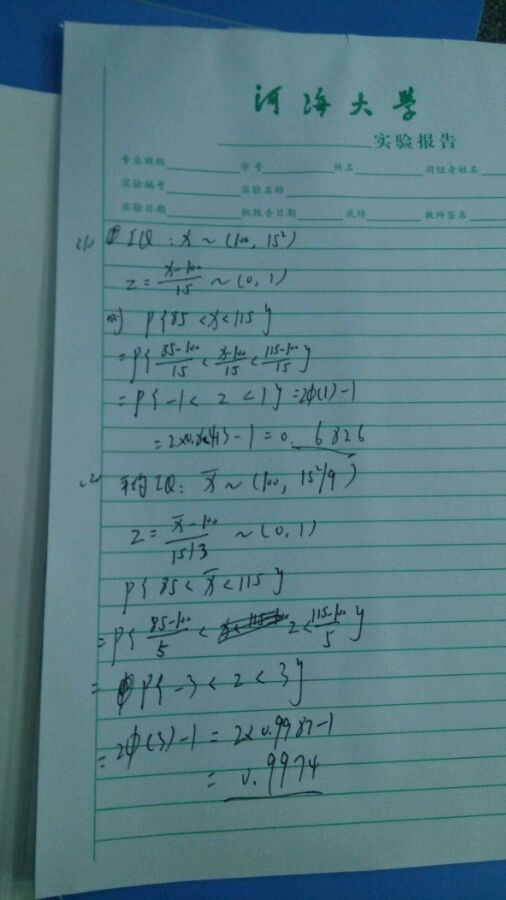 河海大学
实验报告
专业班级 学号 姓名 同组者姓名
实验编号 实验名称
实验日期 批报告日期 成绩 教师签名
(1) IQ: X ~ (100, 15²)
Z = X-100/15 ~ (0, 1)
则 P{85 < X < 115}
= P{85-100/15 < X-100/15 < 115-100/15}
= P{-1 < Z < 1} = 2Φ(1)-1
= 2×0.8413-1 = 0.6826
(2) 平均IQ: X̄ ~ (100, 15²/9)
Z = X̄-100/15/3 ~ (0, 1)
P{85 < X̄ < 115}
= P{85-100/5 < Z < 115-100/5}
= P{-3 < Z < 3}
= 2Φ(3)-1 = 2×0.9987-1
= 0.9974